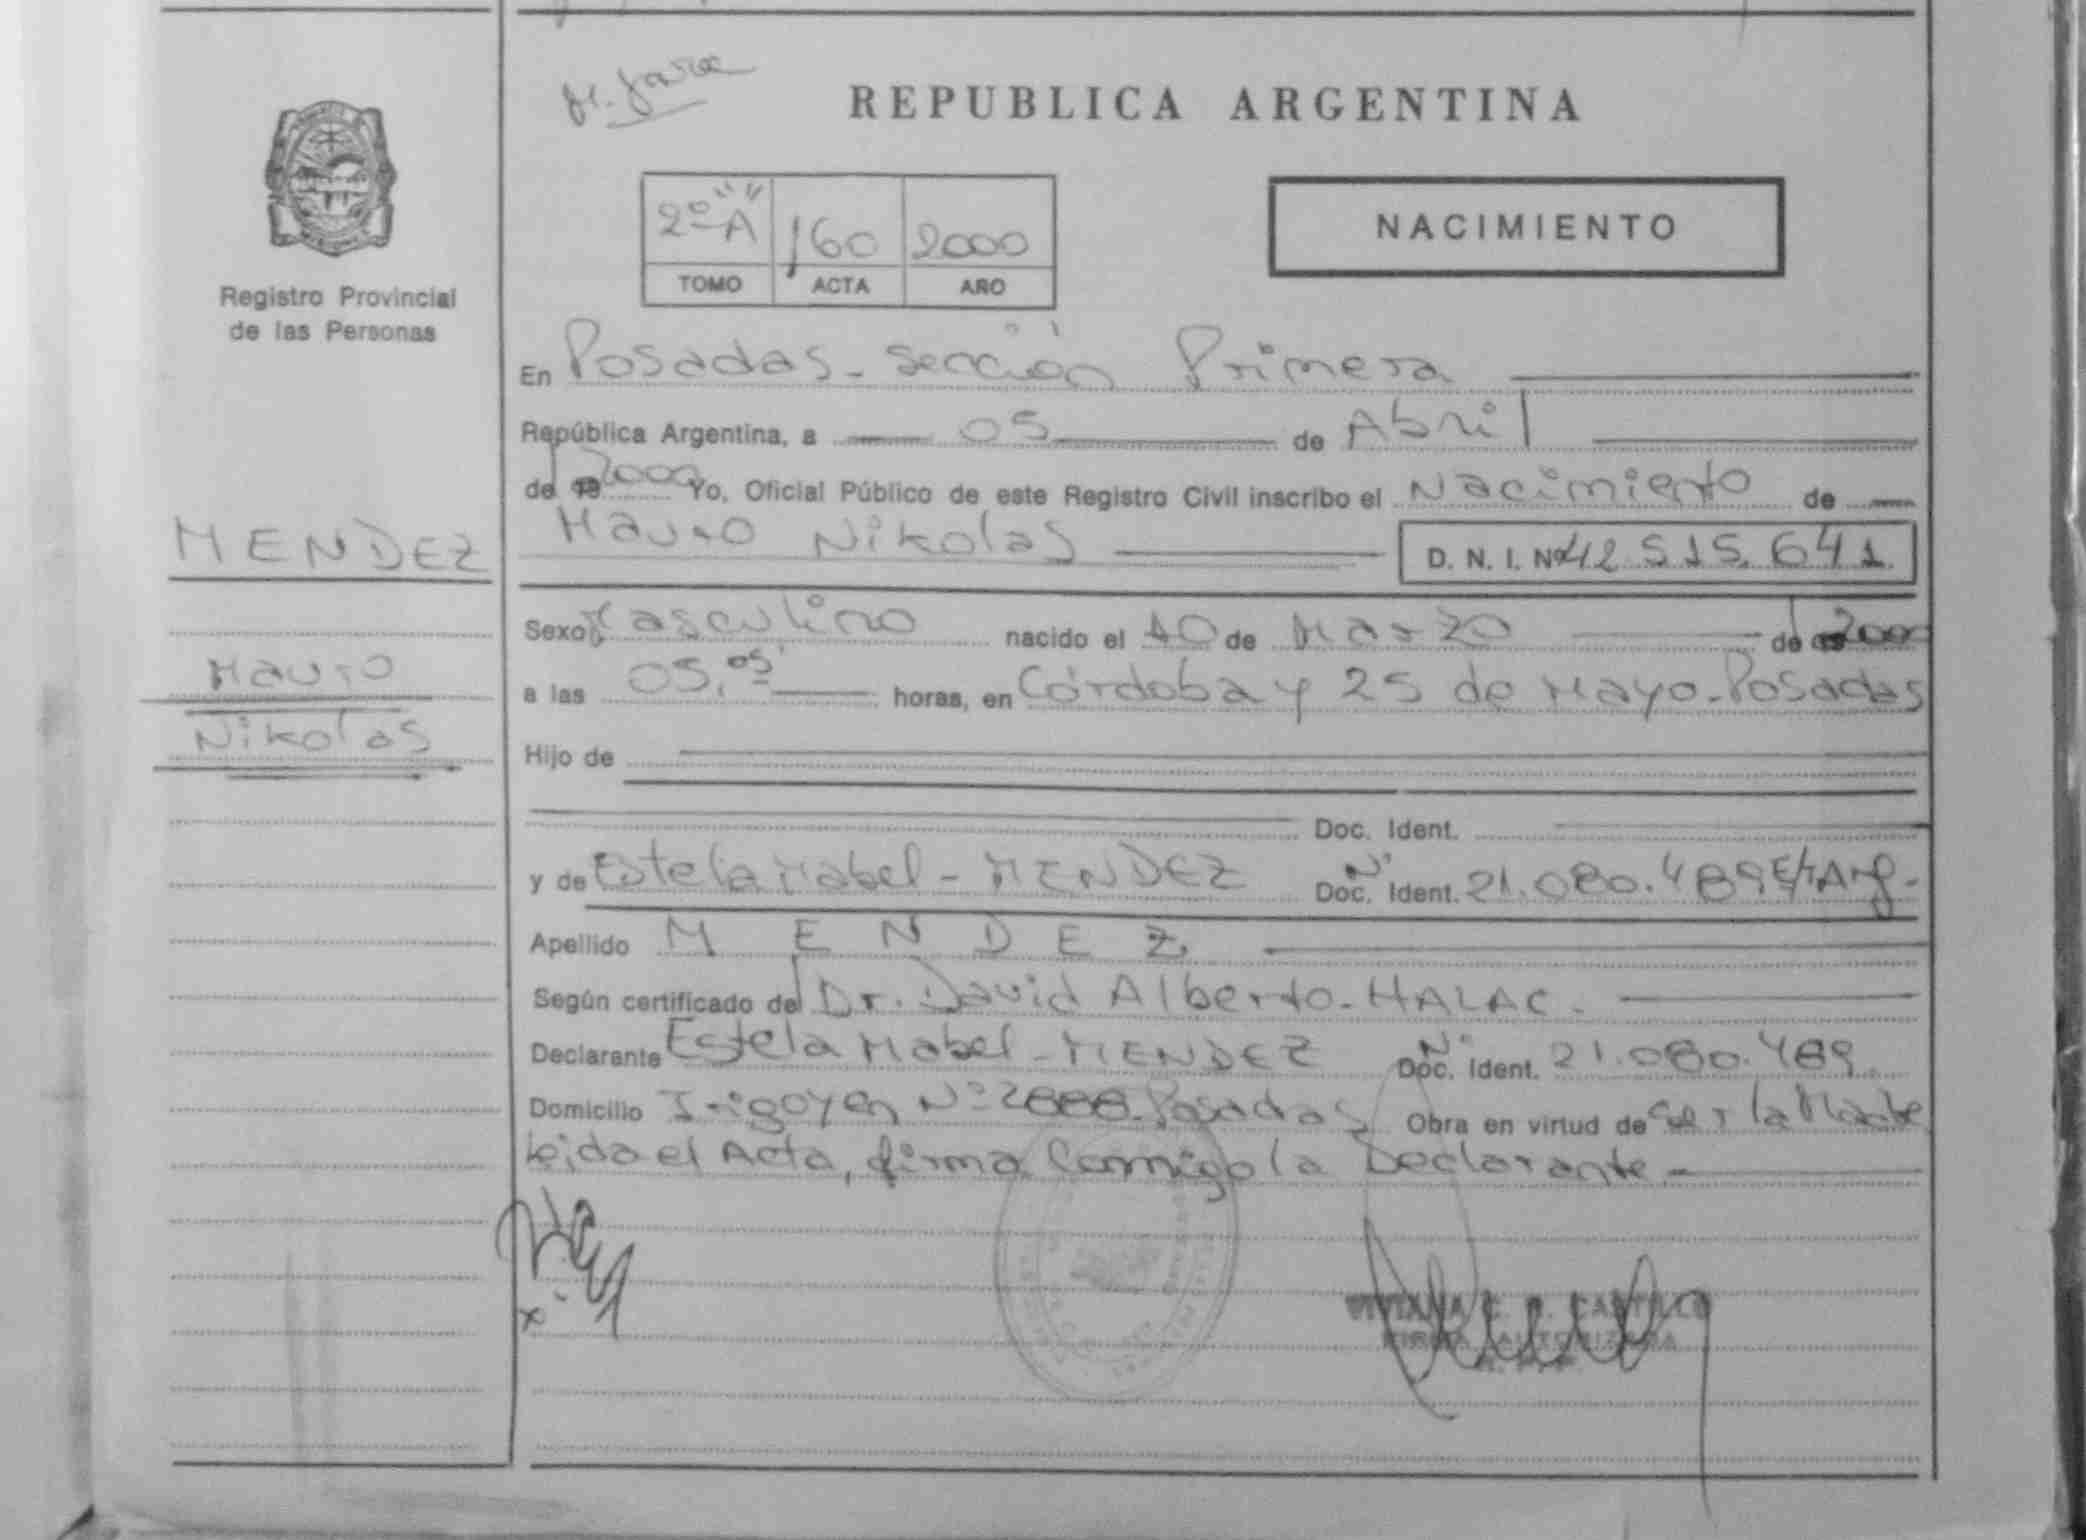 REPUBLICA ARGENTINA
Registro Provincial
de las Personas
2º "A" 160 2000
TOMO ACTA AÑO
NACIMIENTO
En Posadas - Sección Primera
República Argentina, a 05 de Abril
de 2000 Yo, Oficial Público de este Registro Civil inscribo el Nacimiento de
MENDEZ
Mauro Nikolas D. N. I. Nº 42.515.641
Sexo Masculino nacido el 10 de Marzo de 2000
Mauro
Nikolas
a las 05.05 horas, en Córdoba y 25 de Mayo - Posadas
Hijo de
Doc. Ident.
y de Estela Mabel - MENDEZ Doc. Nº Ident. 21.080.489
Apellido MENDEZ
Según certificado del Dr. David Alberto - HALAC -
Declarante Estela Mabel - MENDEZ Doc. Nº Ident. 21.080.489.
Domicilio Irigoyen Nº Posadas Obra en virtud de ser la Madre
Leida el Acta, firma Conmigo la Declarante -
VIVIANA CASTILLO
FIRMA AUTORIZADA